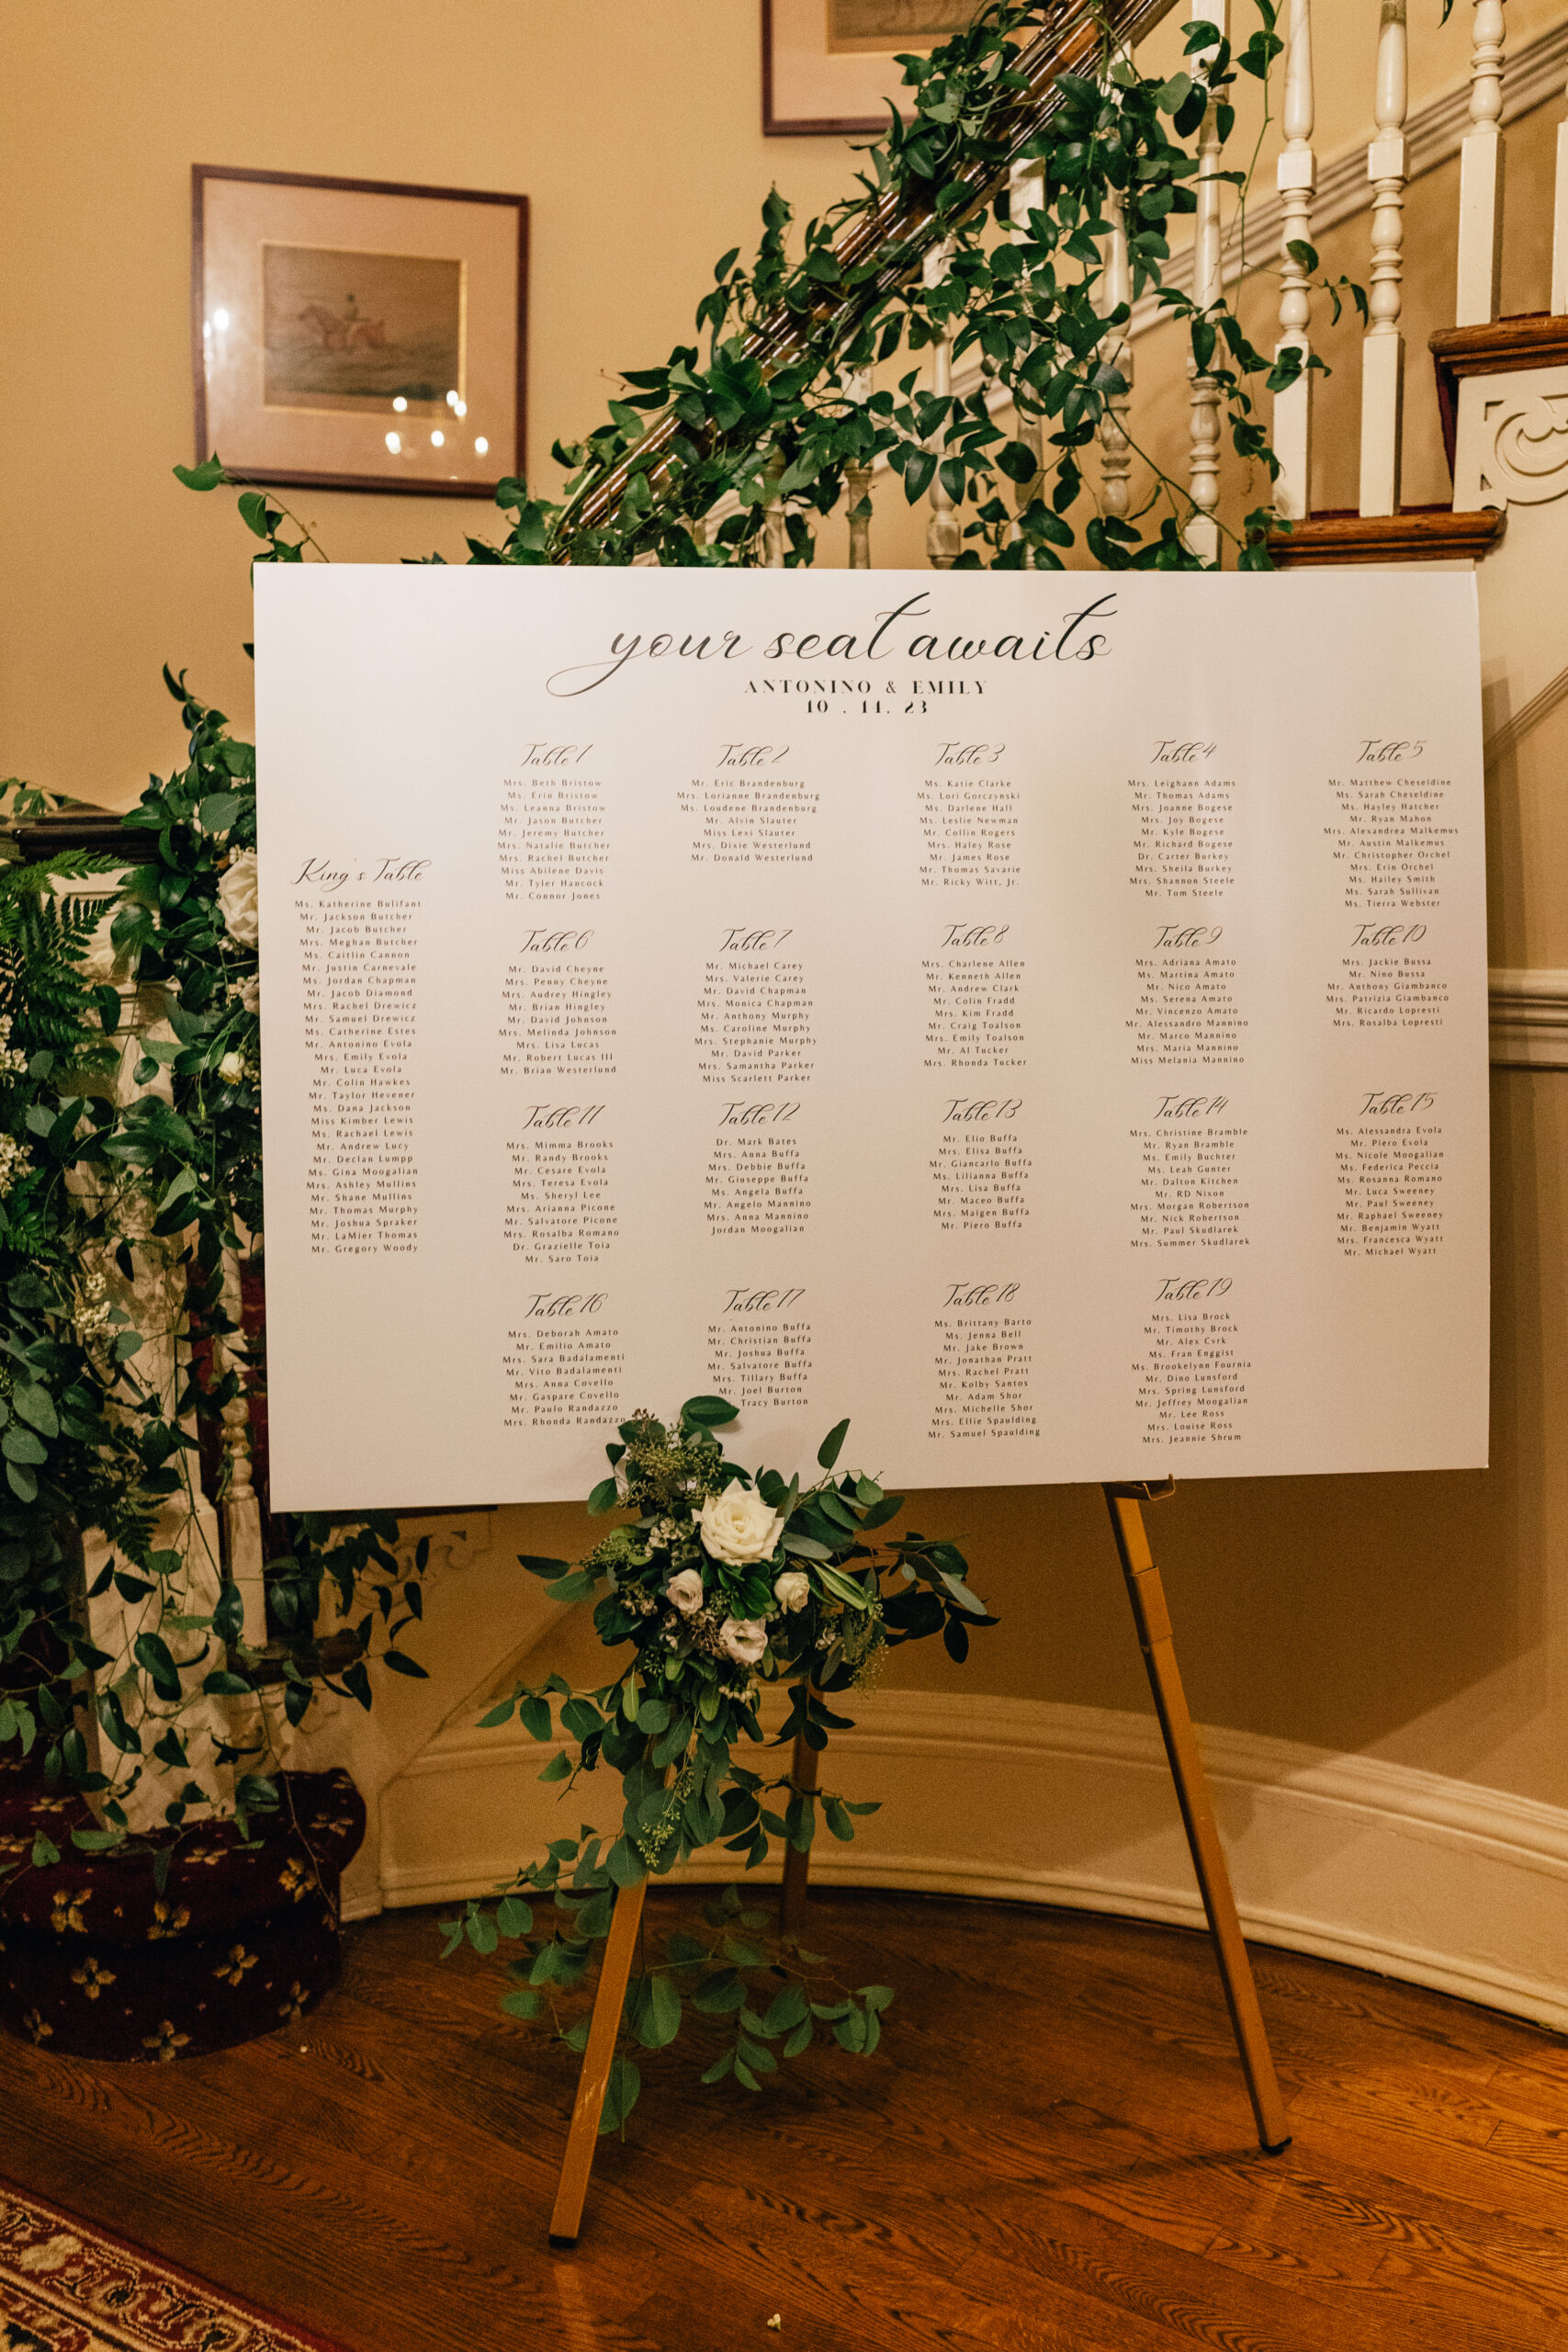 your seat awaits
ANTONINO & EMILY
10 . 14. 23
King's Table
Ms. Katherine Bulifant
Mr. Jackson Butcher
Mr. Jacob Butcher
Mrs. Meghan Butcher
Ms. Caitlin Cannon
Mr. Justin Carnevale
Ms. Jordan Chapman
Mr. Jacob Diamond
Mrs. Rachel Drewicz
Mr. Samuel Drewicz
Ms. Catherine Estes
Mr. Antonino Evola
Mrs. Emily Evola
Mr. Luca Evola
Mr. Colin Hawkes
Mr. Taylor Hevener
Ms. Dana Jackson
Miss Kimber Lewis
Ms. Rachael Lewis
Mr. Andrew Lucy
Mr. Declan Lumpp
Ms. Gina Moogalian
Mrs. Ashley Mullins
Mr. Shane Mullins
Mr. Thomas Murphy
Mr. Joshua Spraker
Mr. LaMier Thomas
Mr. Gregory Woody
Table 1
Mrs. Beth Bristow
Ms. Erin Bristow
Ms. Leanna Bristow
Mr. Jason Butcher
Mr. Jeremy Butcher
Mrs. Natalie Butcher
Mrs. Rachel Butcher
Miss Abilene Davis
Mr. Tyler Hancock
Mr. Connor Jones
Table 2
Mr. Eric Brandenburg
Mrs. Lorianne Brandenburg
Ms. Loudene Brandenburg
Mr. Alvin Slauter
Miss Lexi Slauter
Mrs. Dixie Westerlund
Mr. Donald Westerlund
Table 3
Ms. Katie Clarke
Ms. Lori Gorczynski
Ms. Darlene Hall
Ms. Leslie Newman
Mr. Collin Rogers
Mrs. Haley Rose
Mr. James Rose
Mr. Thomas Savarie
Mr. Ricky Witt, Jr.
Table 4
Mrs. Leighann Adams
Mr. Thomas Adams
Mrs. Joanne Bogese
Mrs. Joy Bogese
Mr. Kyle Bogese
Mr. Richard Bogese
Dr. Carter Burkey
Mrs. Sheila Burkey
Mrs. Shannon Steele
Mr. Tom Steele
Table 5
Mr. Matthew Cheseldine
Ms. Sarah Cheseldine
Ms. Hayley Hatcher
Mr. Ryan Mahon
Mrs. Alexandrea Malkemus
Mr. Austin Malkemus
Mr. Christopher Orchel
Mrs. Erin Orchel
Ms. Hailey Smith
Ms. Sarah Sullivan
Ms. Tierra Webster
Table 6
Mr. David Cheyne
Mrs. Penny Cheyne
Mrs. Audrey Hingley
Mr. Brian Hingley
Mr. David Johnson
Mrs. Melinda Johnson
Mrs. Lisa Lucas
Mr. Robert Lucas III
Mr. Brian Westerlund
Table 7
Mr. Michael Carey
Mrs. Valerie Carey
Mr. David Chapman
Mrs. Monica Chapman
Mr. Anthony Murphy
Ms. Caroline Murphy
Mrs. Stephanie Murphy
Mr. David Parker
Mrs. Samantha Parker
Miss Scarlett Parker
Table 8
Mrs. Charlene Allen
Mr. Kenneth Allen
Mr. Andrew Clark
Mr. Colin Fradd
Mrs. Kim Fradd
Mr. Craig Toalson
Mrs. Emily Toalson
Mr. Al Tucker
Mrs. Rhonda Tucker
Table 9
Mrs. Adriana Amato
Ms. Martina Amato
Mr. Nico Amato
Ms. Serena Amato
Mr. Vincenzo Amato
Mr. Alessandro Mannino
Mr. Marco Mannino
Mrs. Maria Mannino
Miss Melania Mannino
Table 10
Mrs. Jackie Bussa
Mr. Nino Bussa
Mr. Anthony Giambanco
Mrs. Patrizia Giambanco
Mr. Ricardo Lopresti
Mrs. Rosalba Lopresti
Table 11
Mrs. Mimma Brooks
Mr. Randy Brooks
Mr. Cesare Evola
Mrs. Teresa Evola
Ms. Sheryl Lee
Mrs. Arianna Picone
Mr. Salvatore Picone
Mrs. Rosalba Romano
Dr. Grazielle Toia
Mr. Saro Toia
Table 12
Dr. Mark Bates
Mrs. Anna Buffa
Mrs. Debbie Buffa
Mr. Giuseppe Buffa
Ms. Angela Buffa
Mr. Angelo Mannino
Mrs. Anna Mannino
Jordan Moogalian
Table 13
Mr. Elio Buffa
Mrs. Elisa Buffa
Mr. Giancarlo Buffa
Ms. Lilianna Buffa
Mrs. Lisa Buffa
Mr. Maceo Buffa
Mrs. Maigen Buffa
Mr. Piero Buffa
Table 14
Mrs. Christine Bramble
Mr. Ryan Bramble
Ms. Emily Buchter
Ms. Leah Gunter
Mr. Dalton Kitchen
Mr. RD Nison
Mrs. Morgan Robertson
Mr. Nick Robertson
Mr. Paul Skudlarek
Mrs. Summer Skudlarek
Table 15
Ms. Alessandra Evola
Mr. Piero Evola
Ms. Nicole Moogalian
Ms. Federica Peccia
Ms. Rosanna Romano
Mr. Luca Sweeney
Mr. Paul Sweeney
Mr. Raphael Sweeney
Mr. Benjamin Wyatt
Mrs. Francesca Wyatt
Mr. Michael Wyatt
Table 16
Mrs. Deborah Amato
Mr. Emilio Amato
Mrs. Sara Badalamenti
Mr. Vito Badalamenti
Mrs. Anna Covello
Mr. Gaspare Covello
Mr. Paulo Randazzo
Mrs. Rhonda Randazzo
Table 17
Mr. Antonino Buffa
Mr. Christian Buffa
Mr. Joshua Buffa
Mr. Salvatore Buffa
Mrs. Tillary Buffa
Mr. Joel Burton
Tracy Burton
Table 18
Ms. Brittany Barto
Ms. Jenna Bell
Mr. Jake Brown
Mr. Jonathan Pratt
Mrs. Rachel Pratt
Mr. Kolby Santos
Mr. Adam Shor
Mrs. Michelle Shor
Mrs. Ellie Spaulding
Mr. Samuel Spaulding
Table 19
Mrs. Lisa Brock
Mr. Timothy Brock
Mr. Alex Cyrk
Ms. Fran Enggist
Ms. Brookelynn Fournia
Mr. Dino Lunsford
Mrs. Spring Lunsford
Mr. Jeffrey Moogalian
Mr. Lee Ross
Mrs. Louise Ross
Mrs. Jeannie Shrum